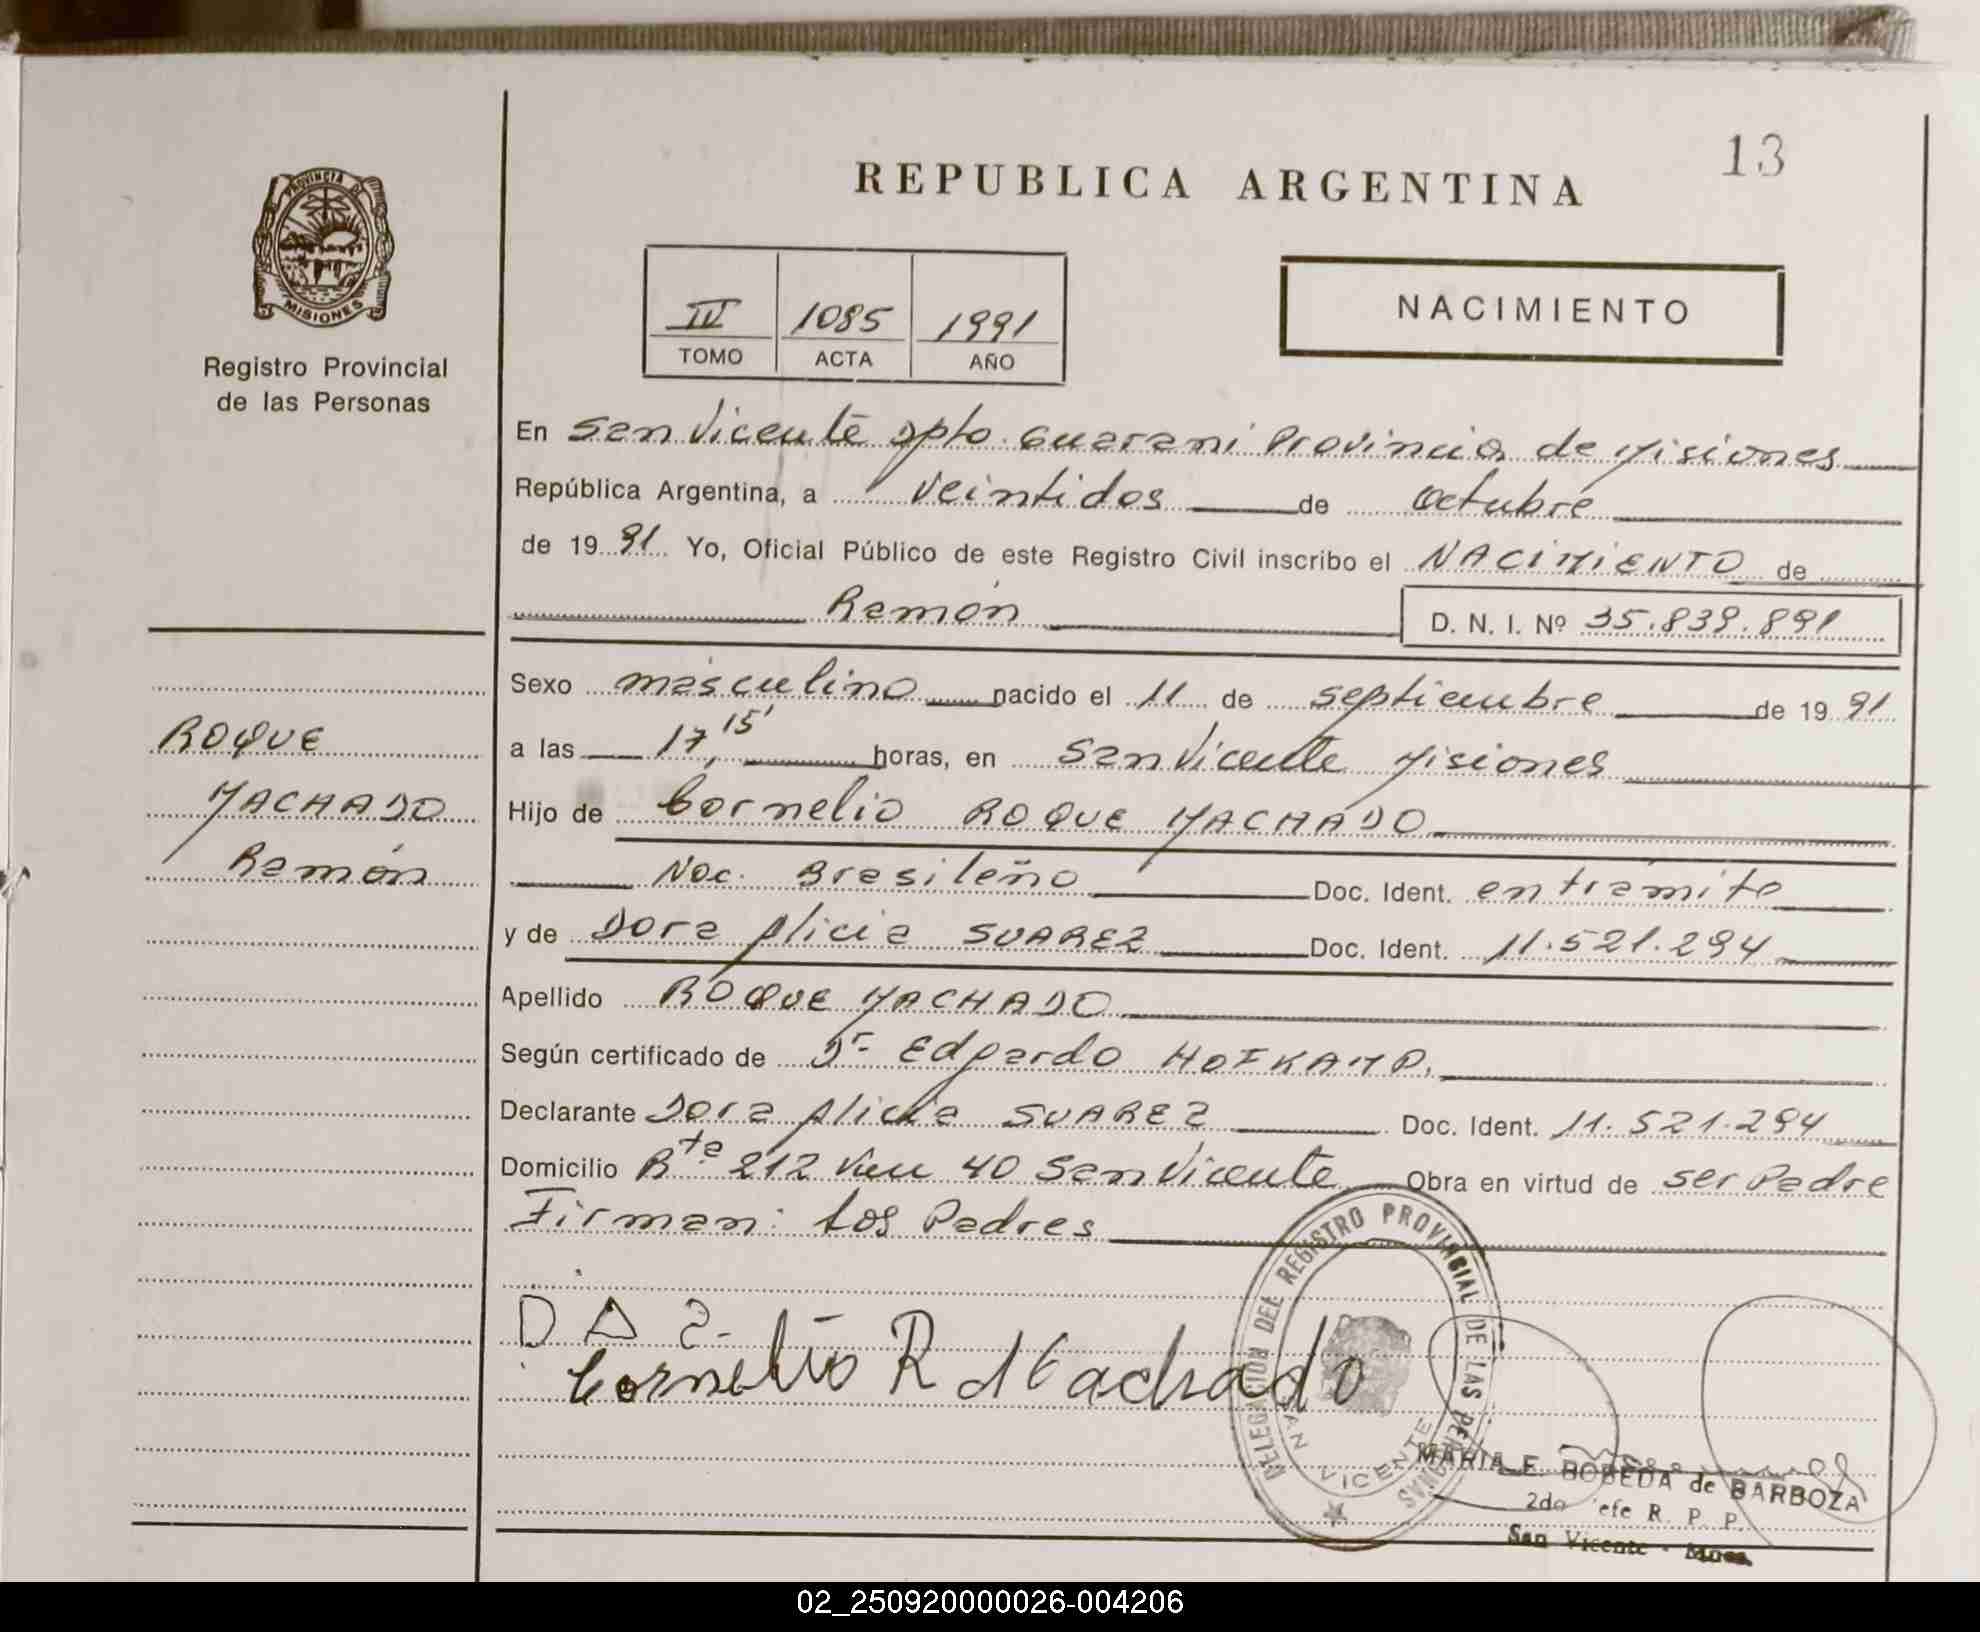 13
REPUBLICA ARGENTINA
PROVINCIA DE
MISIONES
Registro Provincial
de las Personas
IV 1085 1991
TOMO ACTA AÑO
NACIMIENTO
En San Vicente Dpto. Guarani Provincia de Misiones
República Argentina, a veintidos de octubre
de 1991 Yo, Oficial Público de este Registro Civil inscribo el NACIMIENTO de
Ramón D. N. I. Nº 35.839.891
Sexo masculino nacido el 11 de septiembre de 1991
a las 17,15' horas, en San Vicente Misiones
Hijo de Cornelio ROQUE MACHADO
Nac. Brasileño Doc. Ident. en trámite
y de Dora Alicia SUAREZ Doc. Ident. 11.521.294
Apellido ROQUE MACHADO
Según certificado de Dr- Edgardo HOFKAMP.
Declarante Dora Alicia SUAREZ Doc. Ident. 11.521.294
Domicilio Rta 212 km 40 San Vicente Obra en virtud de ser Padre
Firman: Los Padres
ROQUE
MACHADO
Ramón
D A S-
Cornelio R Machado
DELEGACION DEL REGISTRO PROVINCIAL DE LAS PERSONAS
SAN VICENTE
MARIA E. BOBEDA de BARBOZA
2do Jefe R. P. P.
San Vicente - Mnes.
02_250920000026-004206